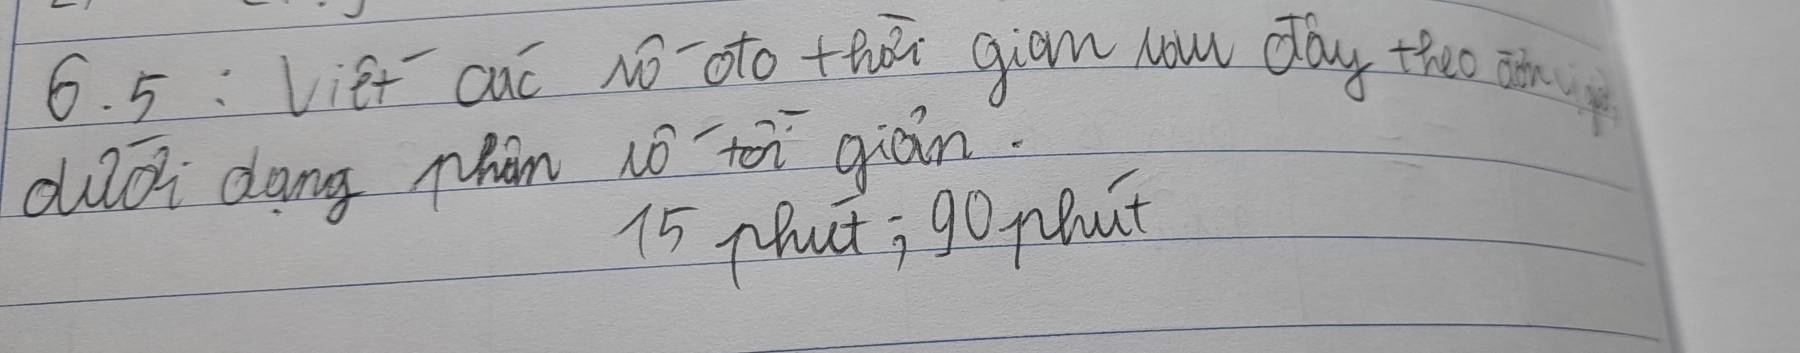 6.5: Viết các số đo thời gian sau đây theo đơn vị giờ
dưới dạng phân số tối giản.
15 phút; 90 phút